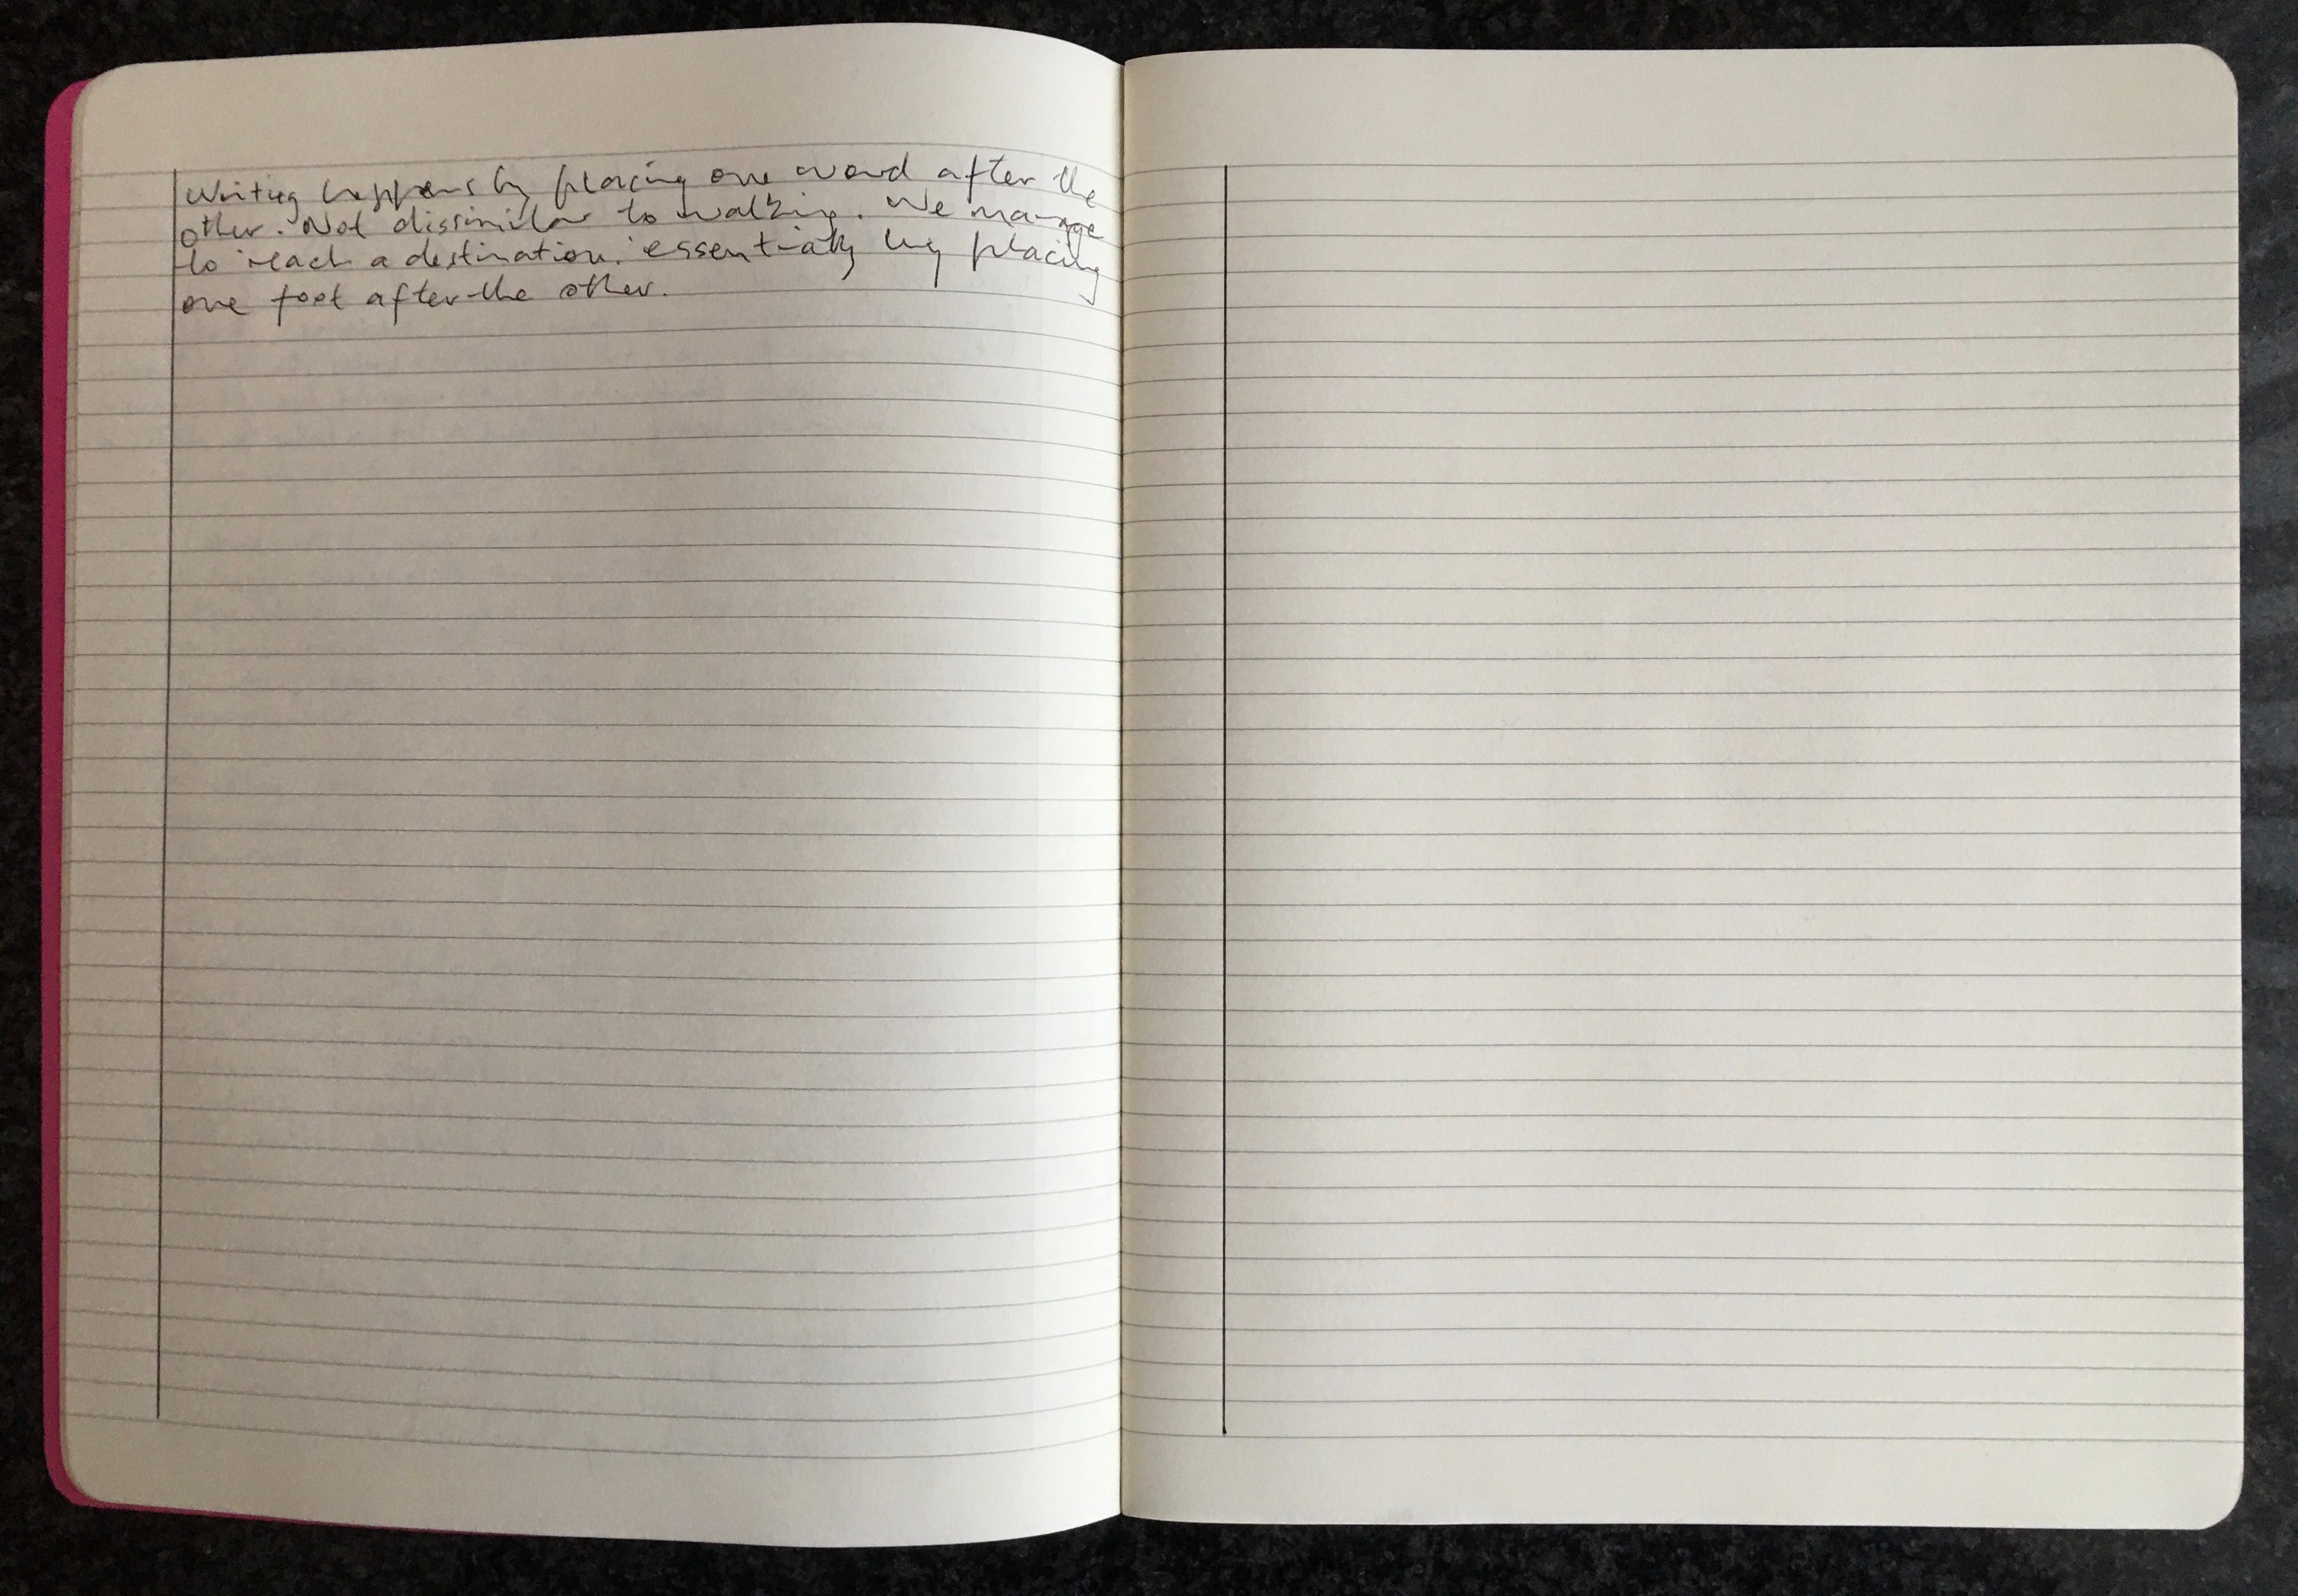 Writing happens by placing one word after the
other. Not dissimilar to walking. We manage
to reach a destination, essentially by placing
one foot after the other.